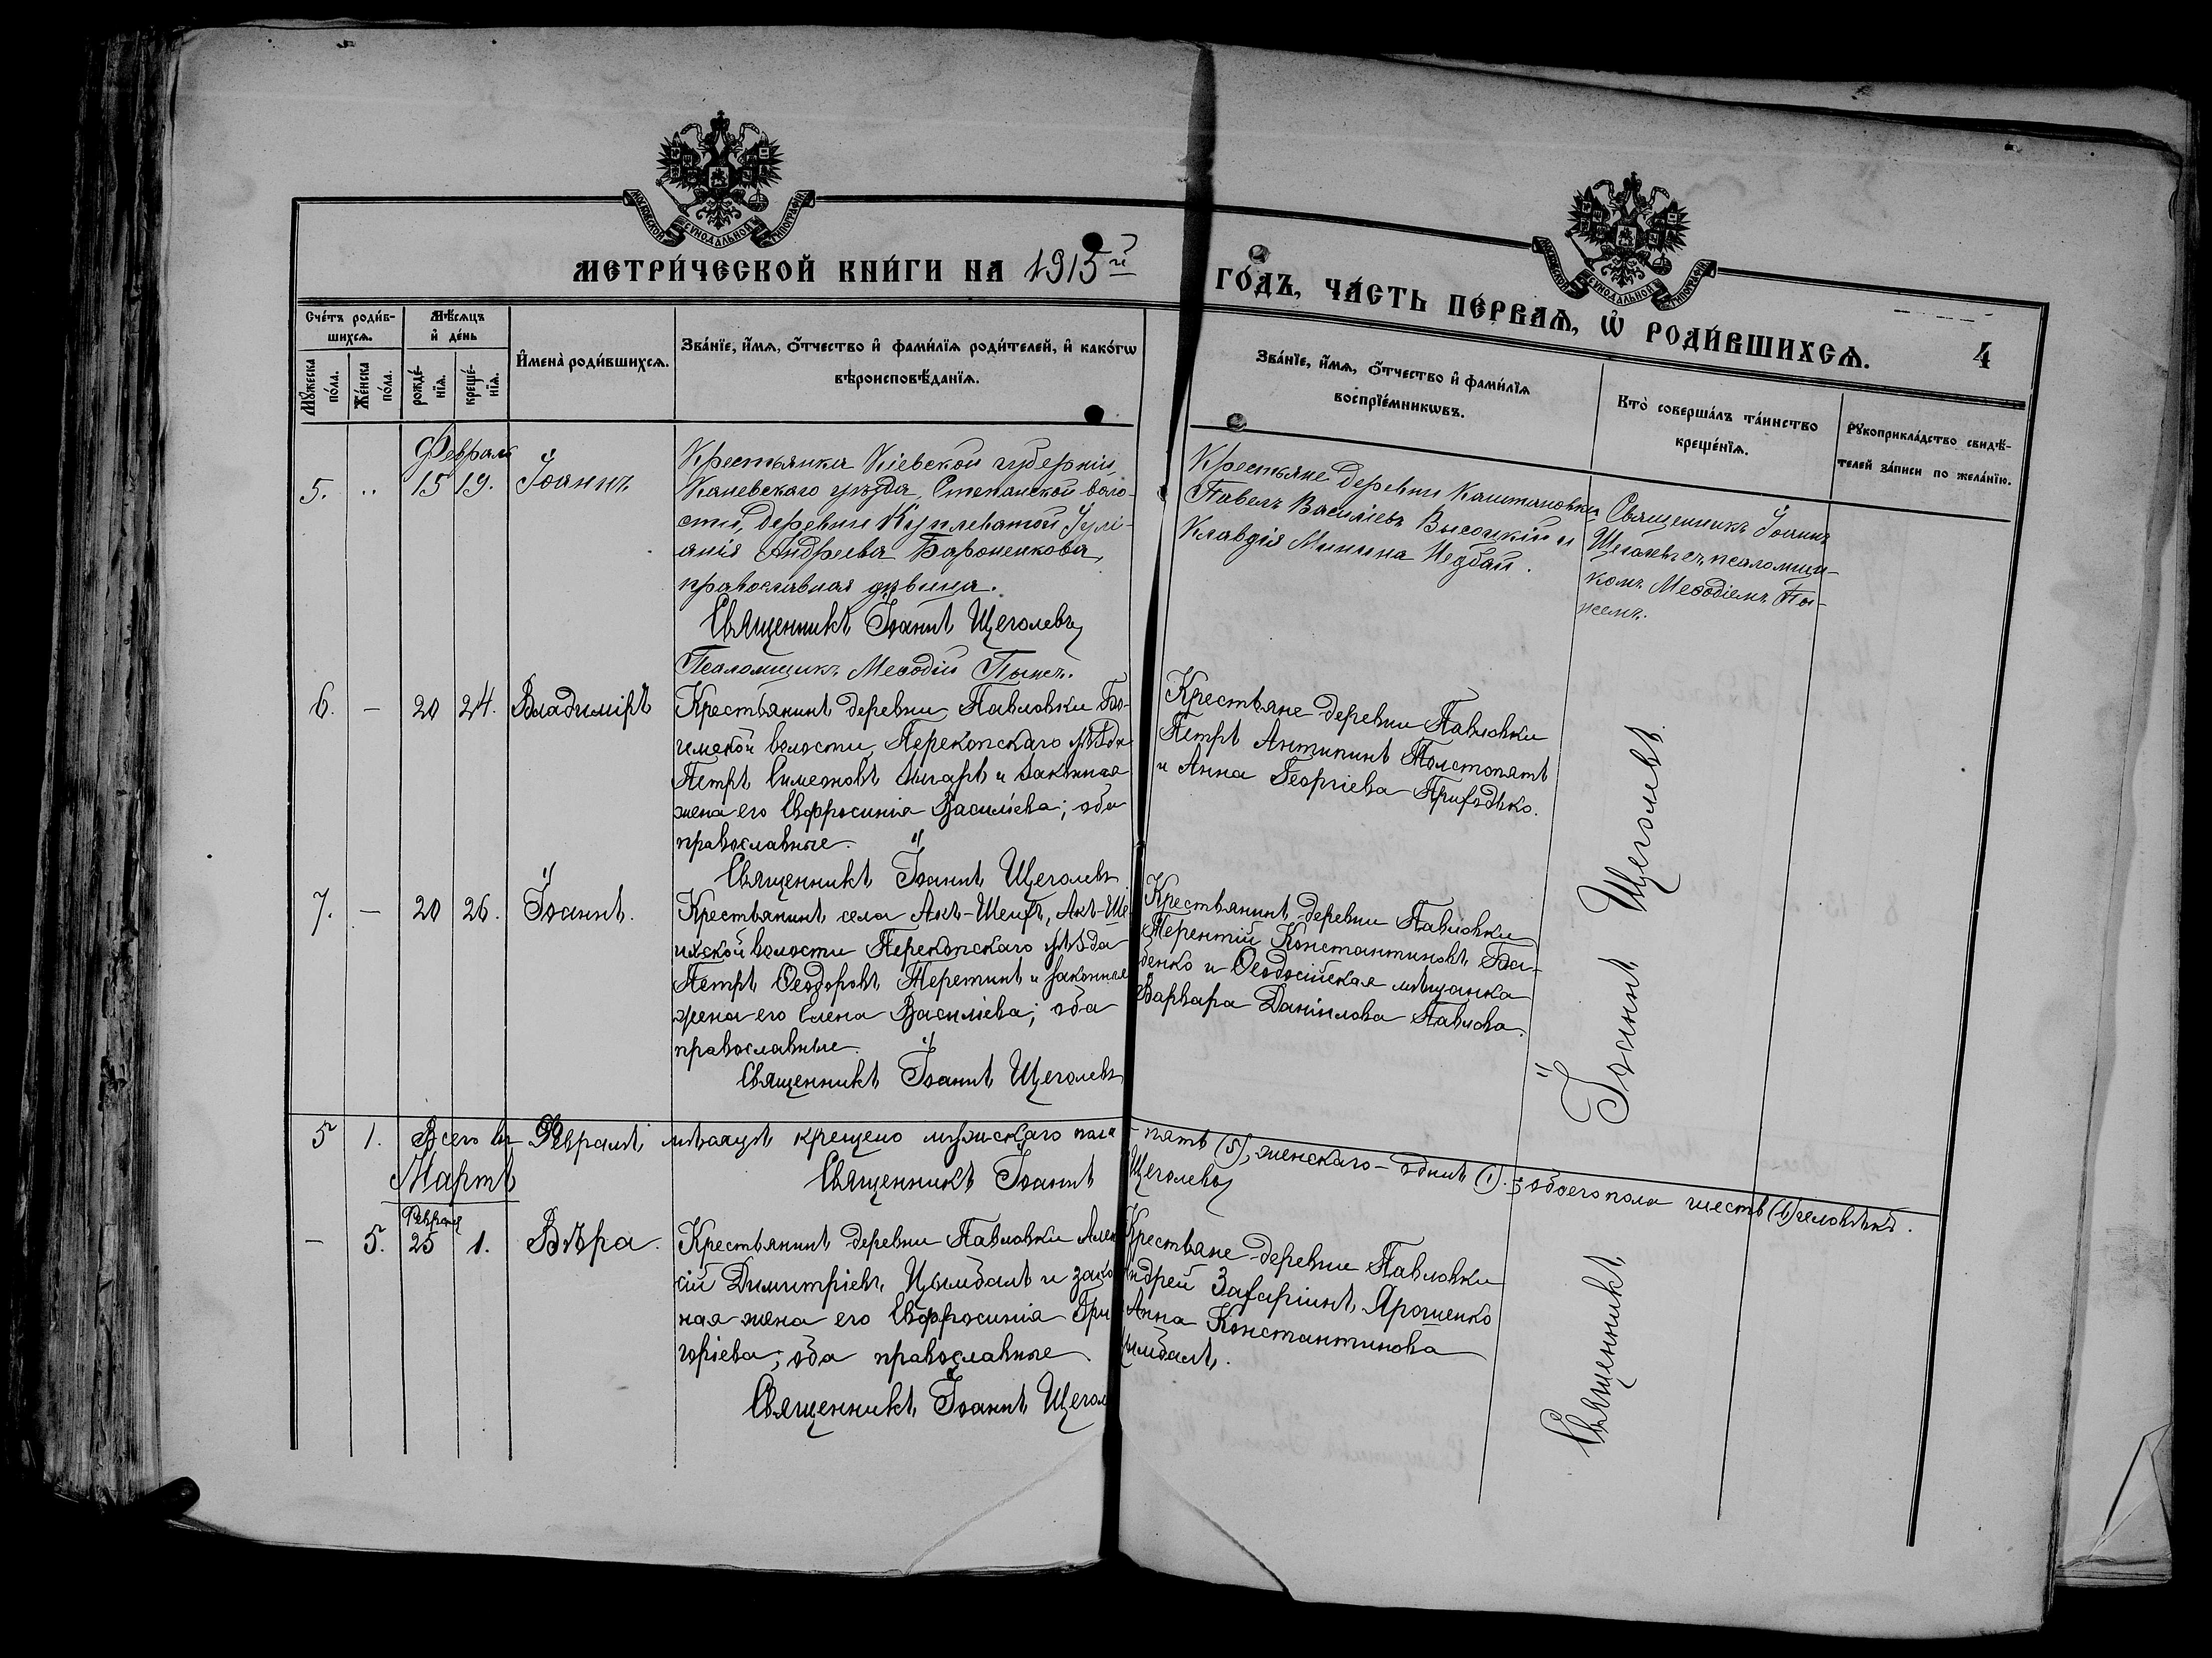 МОСКОВСКОЙ СѴНОДАЛЬНОЙ ТИПОГРАФІИ
МОСКОВСКОЙ СѴНОДАЛЬНОЙ ТИПОГРАФІИ
МЕТРИ́ЧЕСКОЙ КНИ́ГИ НА 1915й ГО́ДЪ, ЧА́СТЬ ПЕ́РВАѦ, Ѽ РОДИ́ВШИХСѦ. 4
Сче́тъ роди́в-
шихсѧ.
Мꙋ́жеска по́ла.
Же́нска по́ла.
Мѣ́сѧцъ
и҆ де́нь
рожде́-
нїѧ.
креще́-
нїѧ.
И҆мена̀ роди́вшихсѧ.
Зва́нїе, и҆́мѧ, ѻ҆́тчество и҆ фами́лїѧ роди́телей, и҆ како́гѡ
вѣроисповѣ́данїѧ.
Зва́нїе, и҆́мѧ, ѻ҆́тчество и҆ фами́лїѧ
воспрїе́мникѡвъ.
Кто̀ соверша́лъ та́инство
креще́нїѧ.
Рꙋкоприкла́дство свидѣ́-
телей за́писи по жела́нїю.
Февраль
5. ,, 15 19. Іоаннъ
Крестьянка Кіевской губерніи,
Каневскаго уѣзда, Степанской воло-
сти, деревни Куплеватой Іулі-
анія Андреева Бароненкова,
православная дѣвица.
Священникъ Іоаннъ Щеголевъ
Псаломщикъ Меѳодій Пыжъ.
Крестьяне деревни Каштановки
Павелъ Василіевъ Высоцкій и
Клавдія Минина Недбай.
Священникъ Іоаннъ
Щеголевъ съ псаломщи-
комъ Меѳодіемъ Пы-
жемъ.
6. – 20 24. Владиміръ
Крестьянинъ деревни Павловки Бо-
гемской волости, Перекопскаго уѣзда
Петръ Симеоновъ и законная
жена его Евфросинія Василіева; оба
православные.
Священникъ Іоаннъ Щеголевъ
Крестьяне деревни Павловки
Петръ Антипинъ Толстопятъ
и Анна Георгіева Приходько.
7. – 20 26. Іоаннъ.
Крестьянинъ села Акъ-Шеихъ, Акъ-Ше-
ихской волости Перекопскаго уѣзда
Петръ Ѳеодоровъ Теретинъ и законная
жена его Елена Василіева; оба
православные.
Священникъ Іоаннъ Щеголевъ
Крестьянинъ деревни Павловки
Терентій Константиновъ Ба-
бенко и Ѳеодосійская мѣщанка
Варвара Даніилова Павлова.
5 1. Всего въ Февралѣ мѣсяцѣ крещено мужскаго пола – пять (5), женскаго – одинъ (1).; обоего пола шесть (6) человѣкъ.
Священникъ Іоаннъ Щеголевъ
Мартъ
Февраля
– 5. 25 1. Вѣра.
Крестьянинъ деревни Павловки Алек
сій Димитріевъ Цымбалъ и закон
ная жена его Евфросинія Гри
горіева; оба православные
Священникъ Іоаннъ Щегол
Крестьяне деревни Павловки
ндрей Захаріинъ Ярошенко
Анна Константинова
ымбалъ.
Священникъ Іоаннъ Щеголевъ.